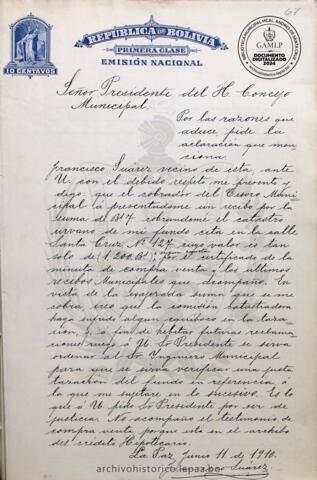 67
REPUBLICA DE BOLIVIA
PRIMERA CLASE
EMISIÓN NACIONAL
10 CENTAVOS
GAMLP
DOCUMENTO
DIGITALIZADO
2024
Señor Presidente del H. Concejo
Municipal.
Por las razones que
aduce, pide la
aclaración que men-
ciona.
Francisco Suárez vecino de esta, ante
U. con el debido respeto me presento y
digo: que el cobrador del Tesoro Muni-
cipal ha presentádome un recibo por la
suma de Bs 7 cobrandome el catastro
urvano de mi fundo cito en la calle
Santa Cruz Nº 127 cuyo valor es tan
solo de (1.200 Bs) certificado de la
minuta de compra venta y los últimos
recibos Municipales que acompaño. En
vista de la exajerada suma que se me
cobra, creo que la comisión catastradora
haya sufrido algun equiboco en la taza-
ción, y á fin de hebitar futuras reclama-
ciones ruego á U. Sr Presidente se sirva
ordenar al Sr Ingeniero Municipal
para que se sirva verificar una justa
tazación del fundo en referencia, á
lo que me sujetare en lo sucesivo. Es lo
que á U. pido Sr Presidente por ser de
justicia. No acompaño el testimonio de
compra venta, porque esta en el archibo
del crédito Hipotecario.
La Paz, Junio 11 de 1910.
Suarez
archivohistoricolapaz.bo